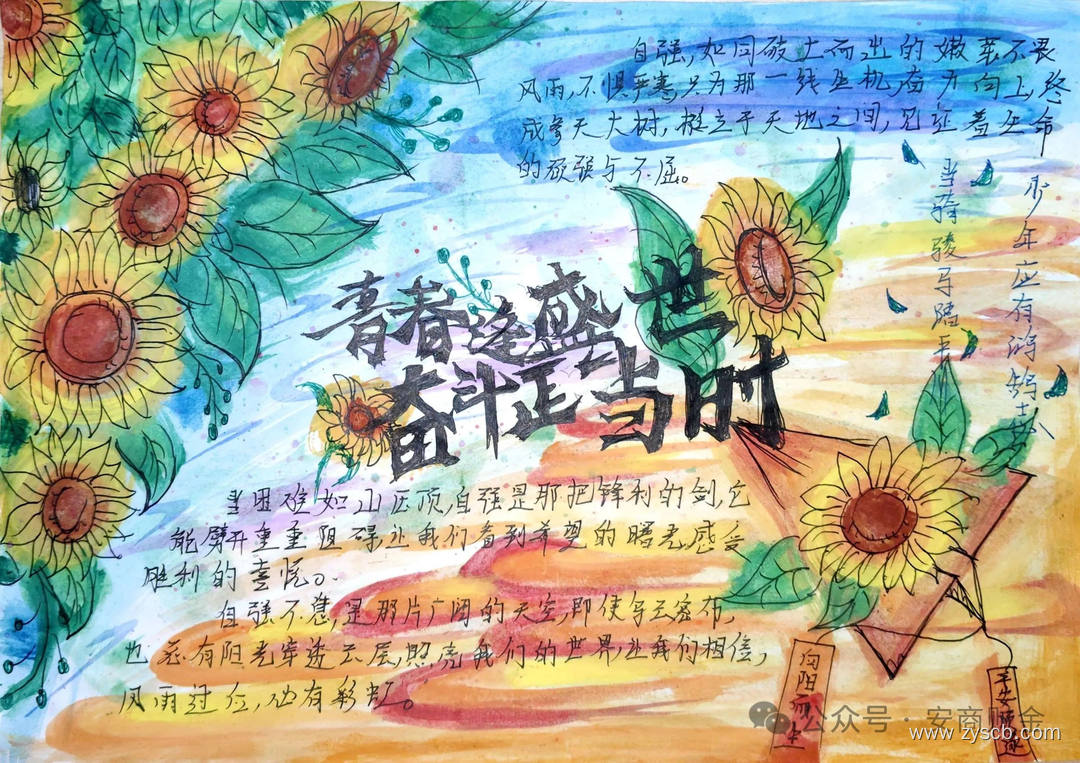 自强,如同破土而出的嫩芽,不畏
风雨,不惧严寒,只为那一线生机,奋力向上,终
成参天大树,挺立于天地之间,见证着生命
的顽强与不屈。
少年应有鸿鹄志
当骑骏马踏长
青春逢盛世
奋斗正当时
当困难如山压顶,自强是那把锋利的剑,它
能劈开重重阻碍,让我们看到希望的曙光,感受
胜利的喜悦。
自强不息,是那片广阔的天空,即使乌云密布,
也总有阳光穿透云层,照亮我们的世界,让我们相信,
风雨过后,必有彩虹。
向阳而上
平安顺遂
公众号·安商财金
www.zyscb.com